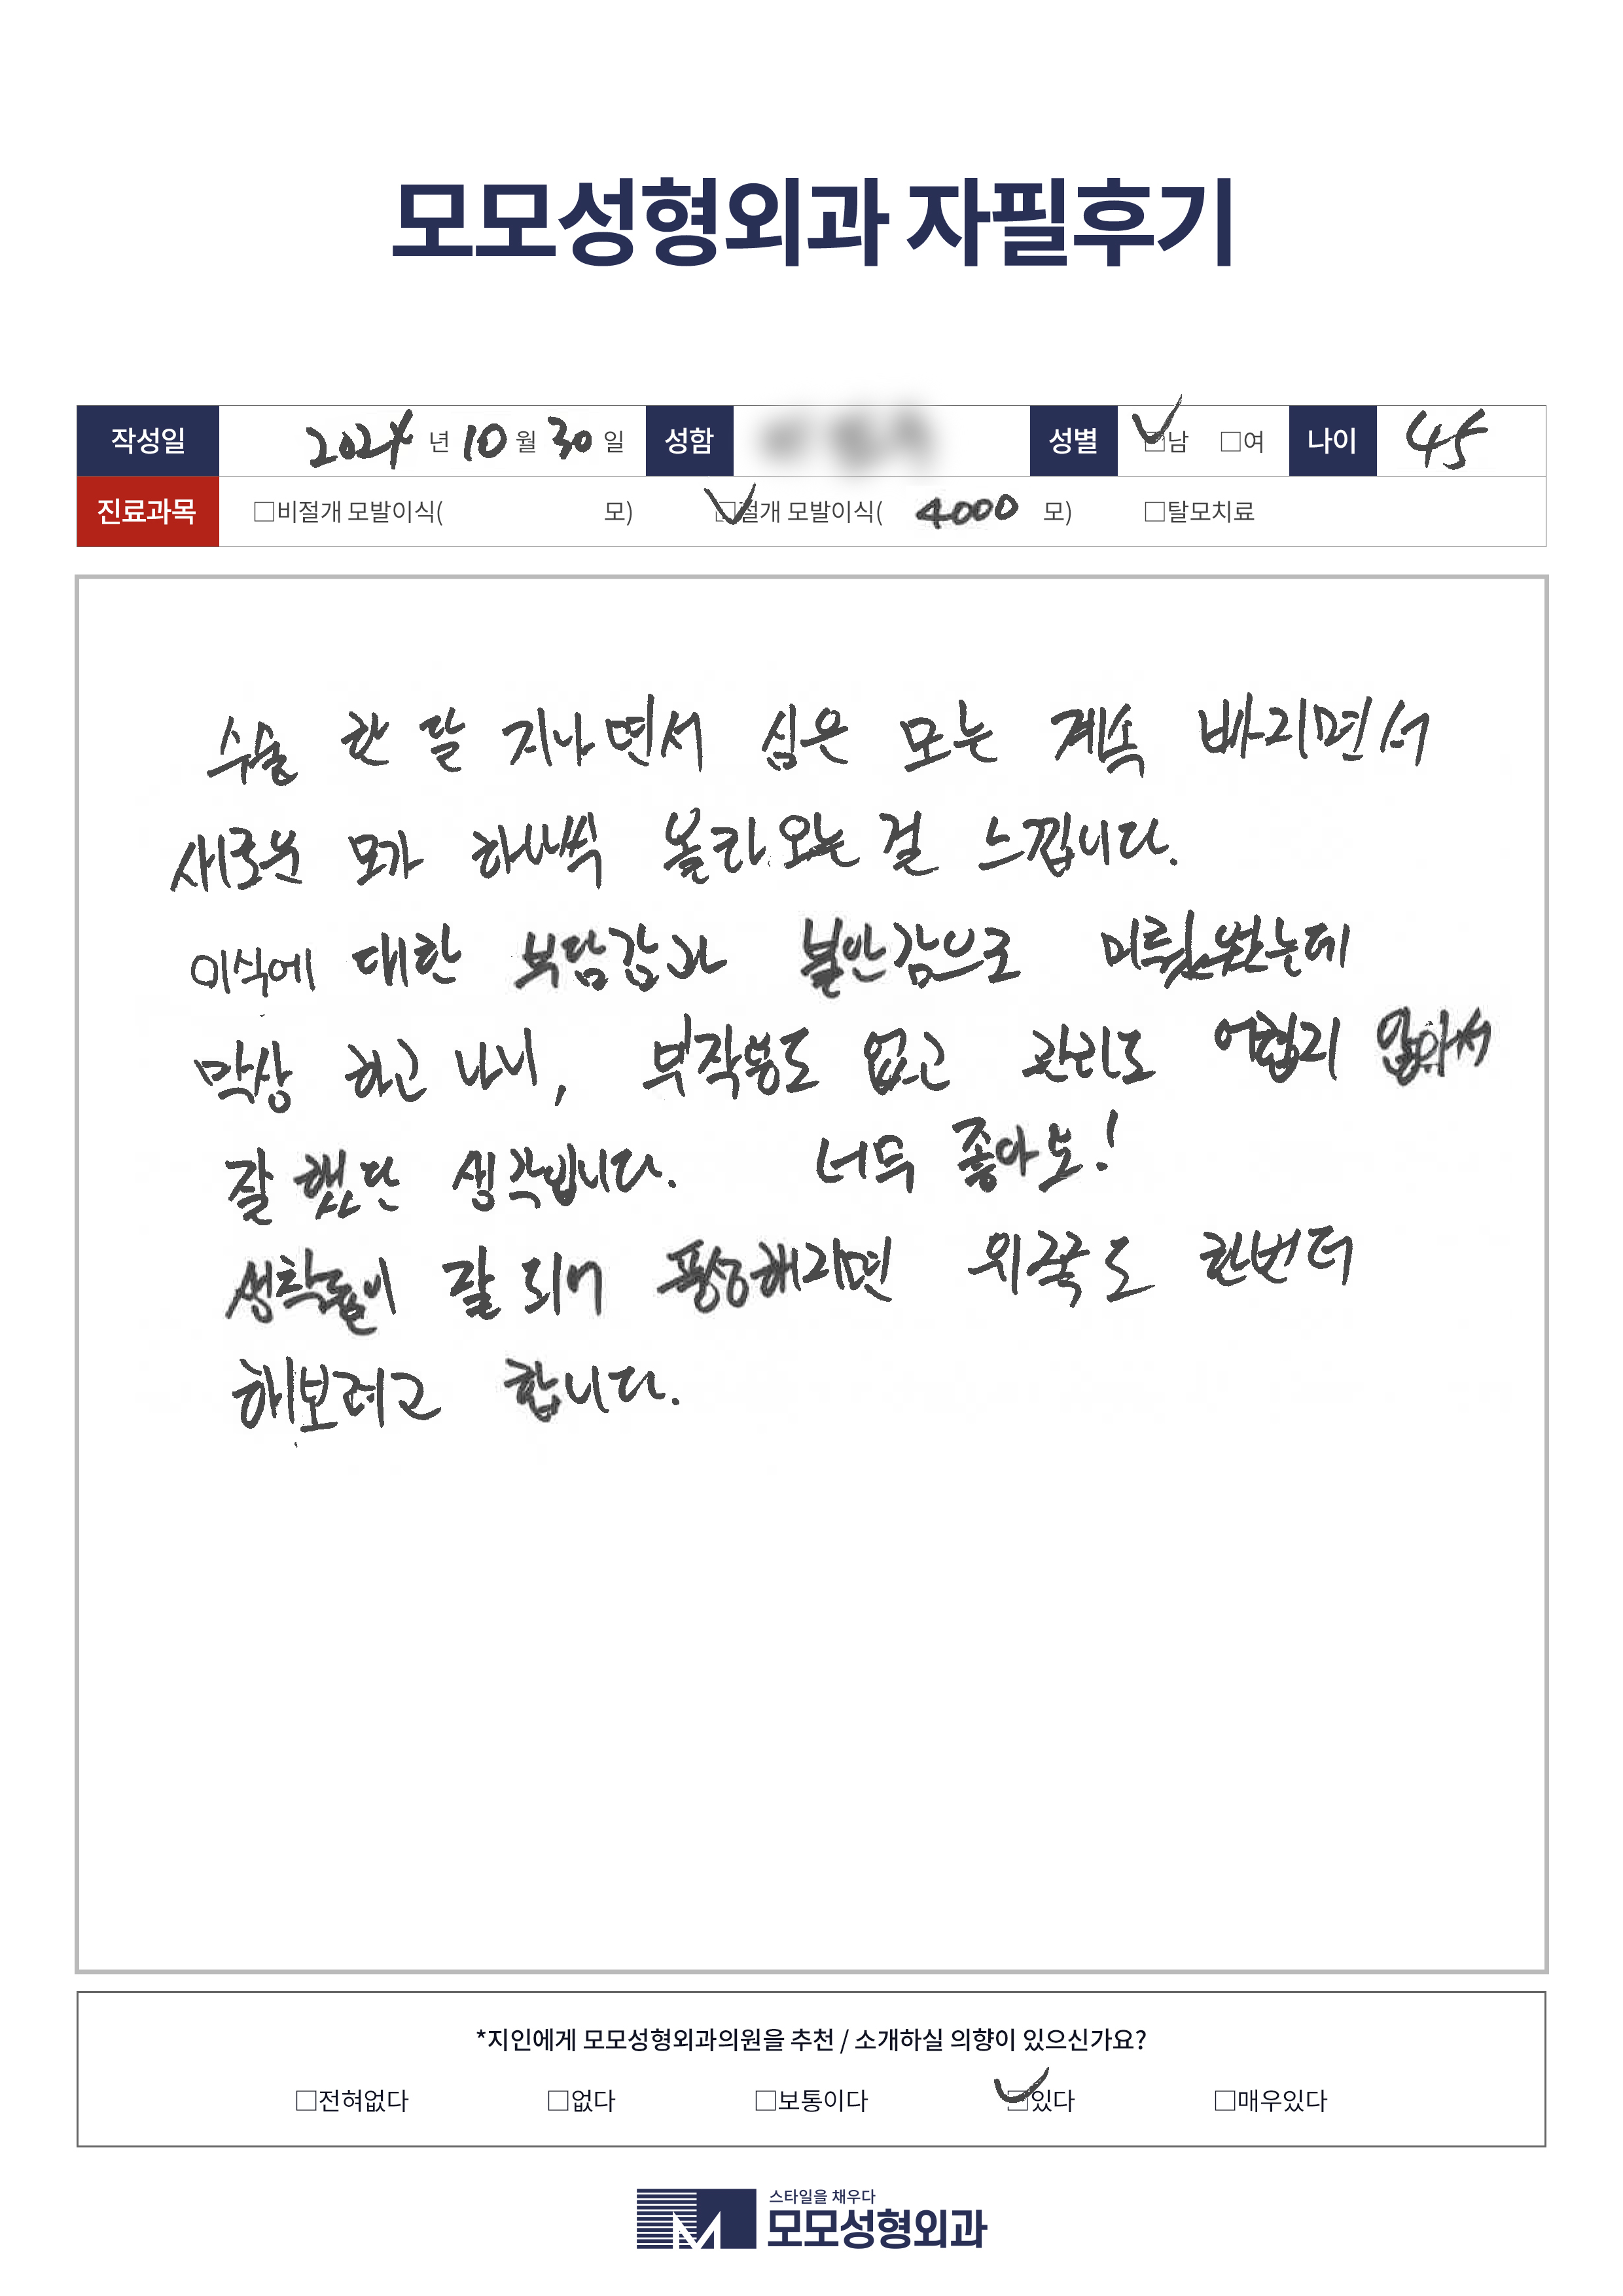 모모성형외과 자필후기
작성일 2024 년 10 월 30 일 성함 성별 □남 □여 나이 45
진료과목 □비절개 모발이식( 모) □절개 모발이식( 4000 모) □탈모치료
수술 한 달 지나면서 심은 모는 계속 빠지면서
새로운 모가 하나씩 올라오는 걸 느낍니다.
이식에 대한 부담감과 불안감으로
막상 하고 나니, 부작용도 없고 관리도 어렵지 않아서
잘 했단 생각입니다. 너무 좋아요!
잘 되어 풍성해지면 외국도 한번 더
해보려고 합니다.
*지인에게 모모성형외과의원을 추천 / 소개하실 의향이 있으신가요?
□전혀없다 □없다 □보통이다 □있다 □매우있다
스타일을 채우다
모모성형외과